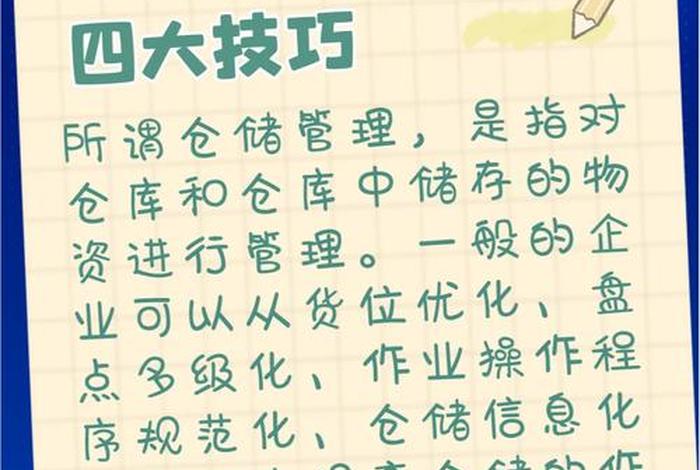 四大技巧
所谓仓储管理，是指对
仓库和仓库中储存的物
资进行管理。一般的企
业可以从货位优化、盘
点多级化、作业操作程
序规范化、仓储信息化
仓储的作